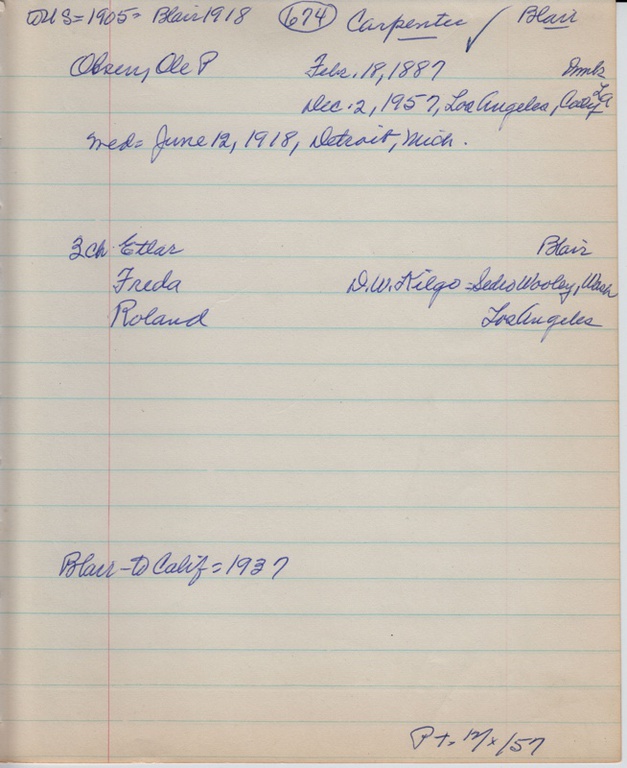 to U S = 1905 = Blair 1918 674 Carpenter ✓ Blair
Obseny, Ole P Febr. 18, 1887 Dmk
Dec. 2, 1957, Los Angeles, Calif
med = June 12, 1918, Detroit, Mich.
3 ch Etlar Blair
Freda D.W. Kilgo = Sedro Wooley, Wash
Roland Los Angeles
Blair - to Calif = 1937
P T = 12/x/57